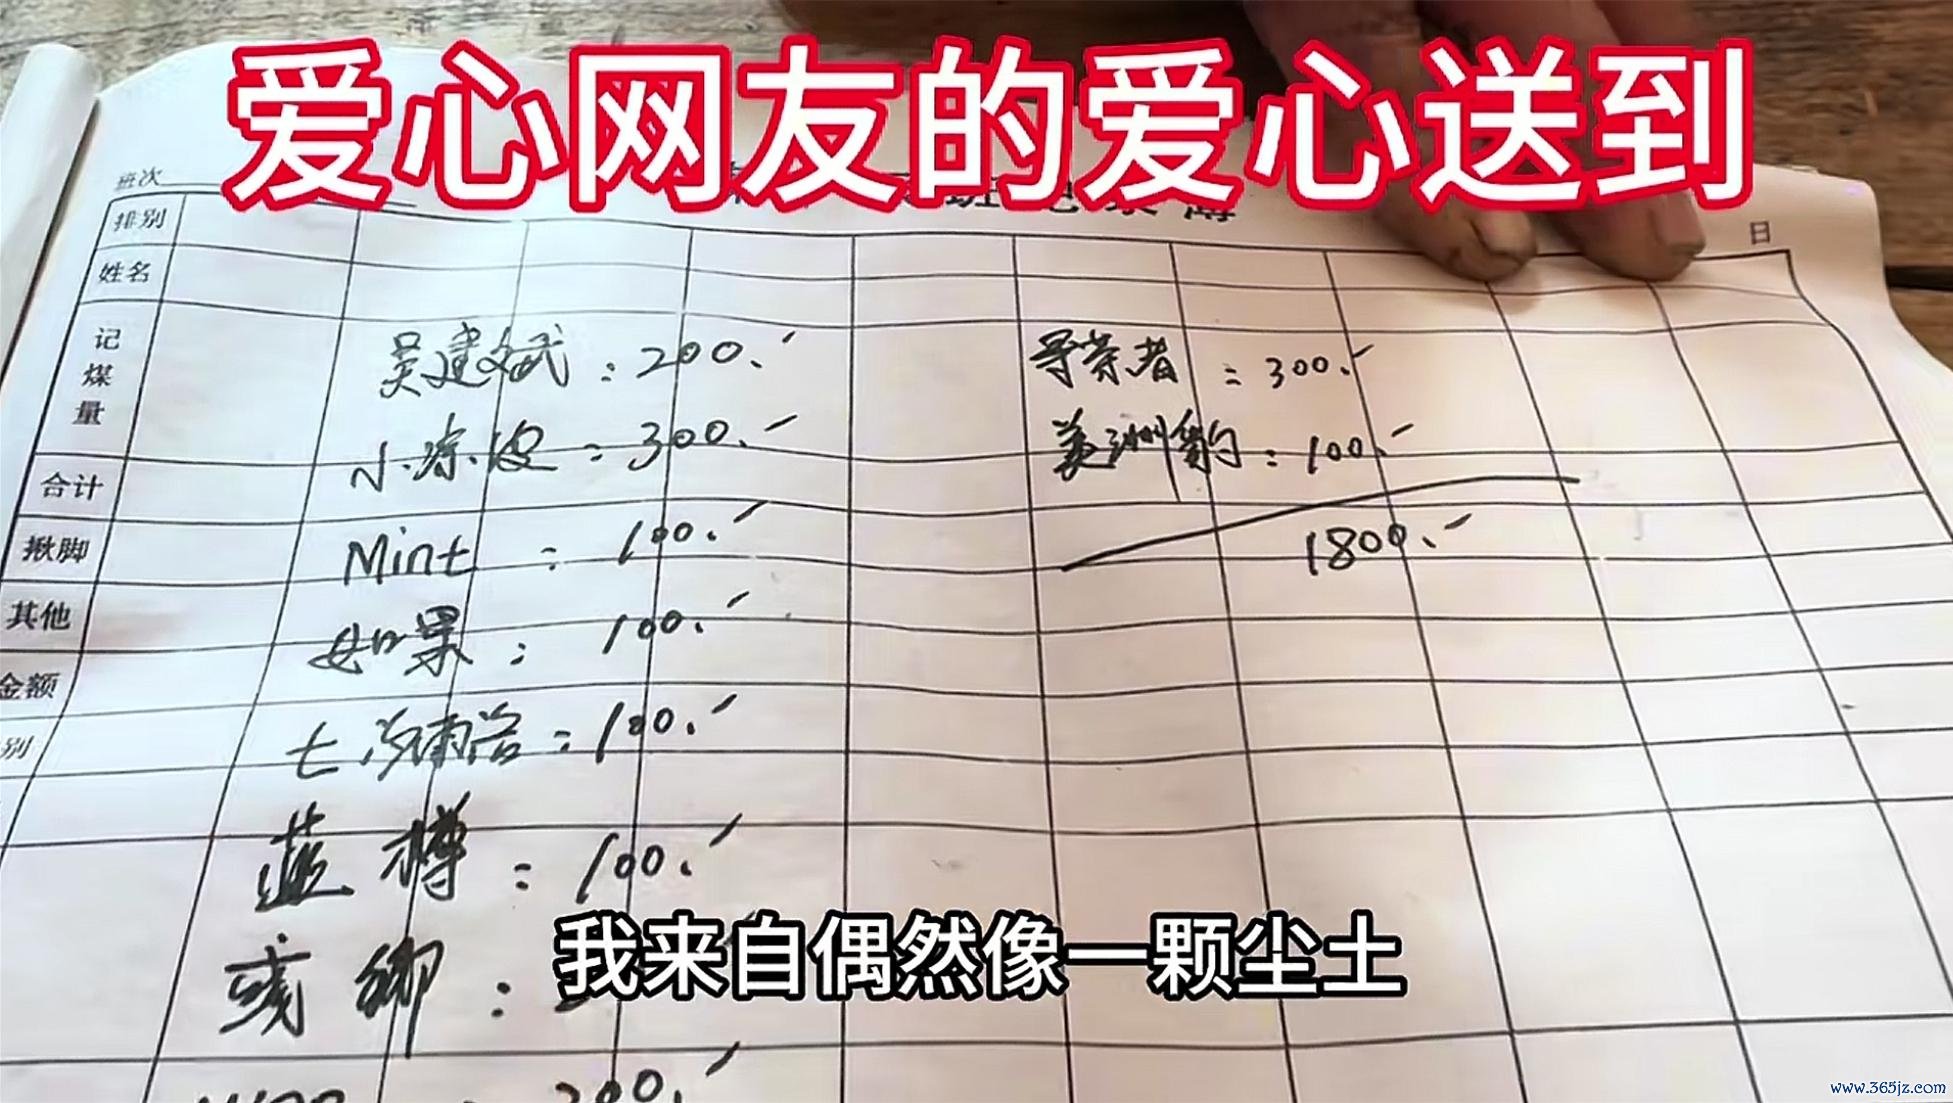 爱心网友的爱心送到
班次
日
排别
姓名
记煤量
合计
揪脚
其他
金额
别
吴建斌：200.
小冻波：300.
Mint：100.
如果：100.
蓝樽：100.
彧卿：
200.
寻荣者：300.
美洲豹：100.
1800.
我来自偶然像一颗尘土
www.365jz.com